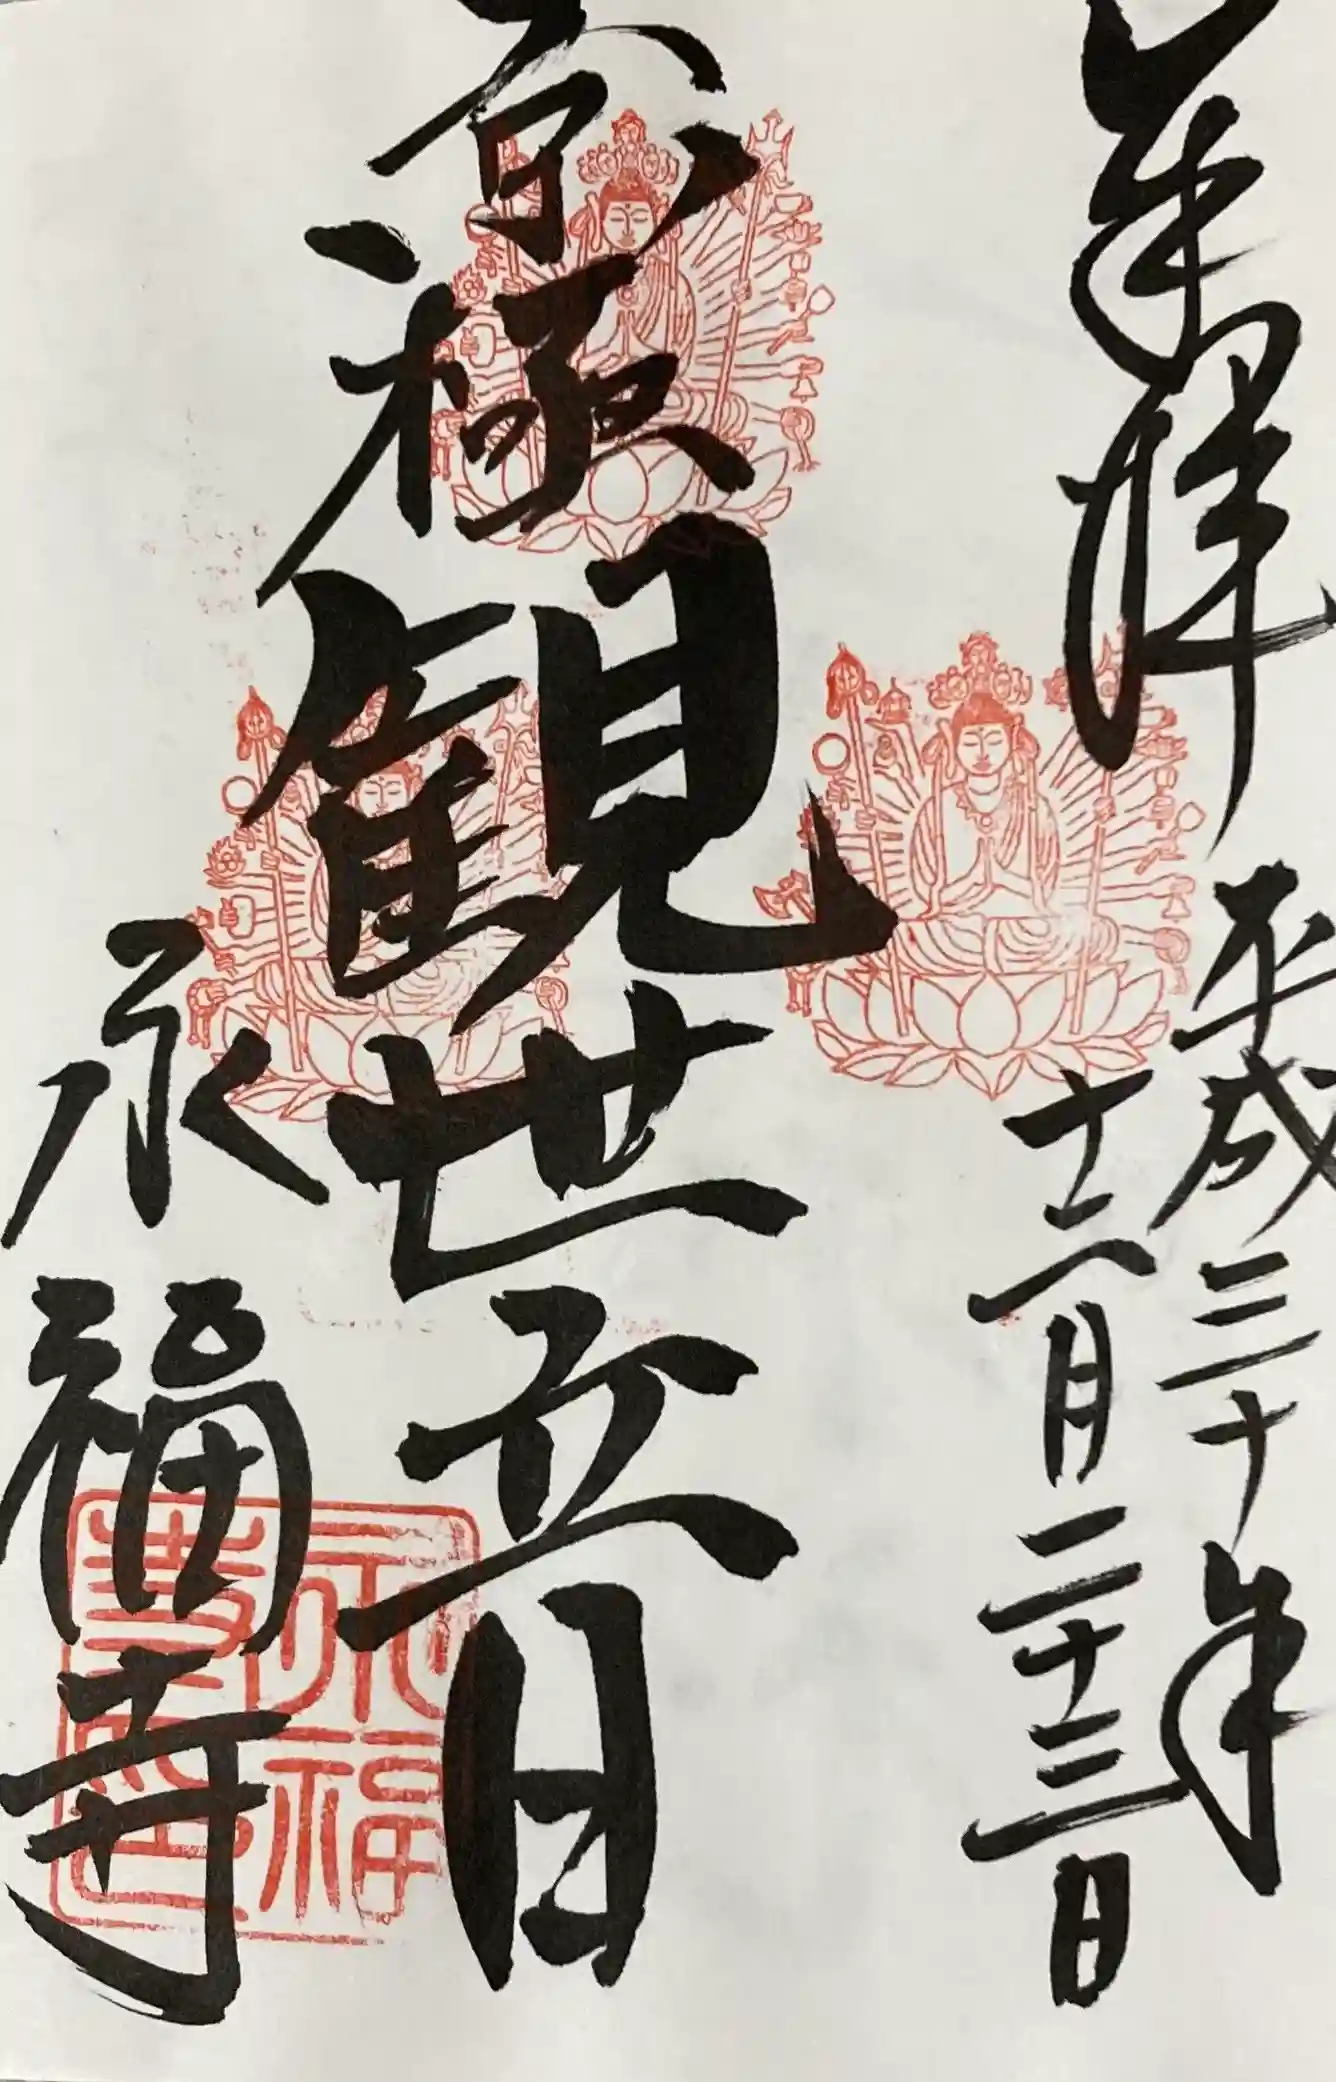 奉拝
平成三十年
十二月二十三日
京極観世音
永福寺
永福
寺印